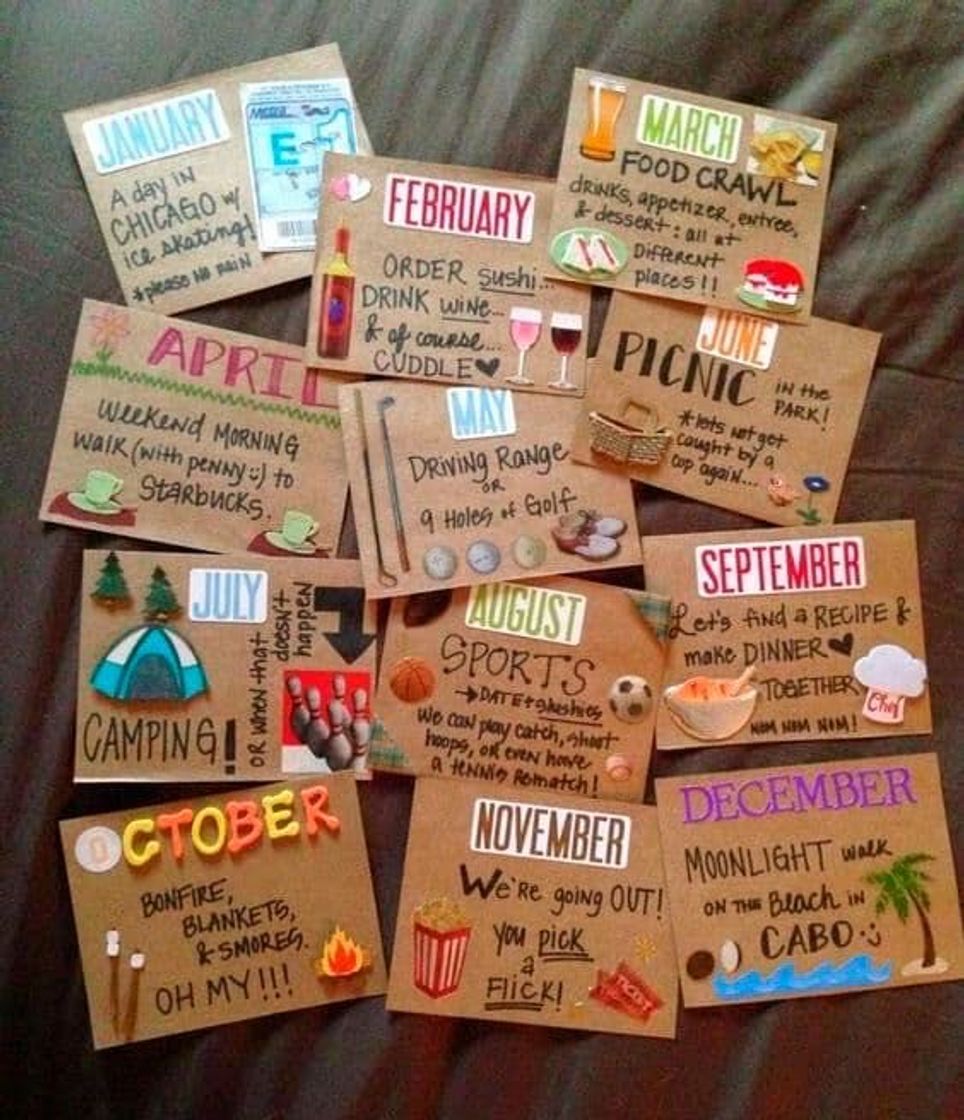 JANUARY
A day in
CHICAGO w/
ice skating!
*please NO rain
Metra
E
FEBRUARY
ORDER sushi...
DRINK wine...
& of course...
CUDDLE♥
MARCH
FOOD CRAWL
drinks, appetizer, entree,
& dessert: all at
Different
places!!
APRIL
Weekend MORNING
walk (with penny :) to
Starbucks.
MAY
Driving Range
OR
9 Holes of Golf
JUNE
PICNIC in the
PARK!
*lets not get
caught by a
cop again...
JULY
CAMPING!
OR when that
doesn't
happen
AUGUST
SPORTS
→DATE
We can play catch, shoot
hoops, or even have
a tennis rematch!
SEPTEMBER
Let's find a RECIPE &
make DINNER♥
TOGETHER
NOM NOM NOM!
Chef
OCTOBER
BONFIRE,
BLANKETS,
& SMORES.
OH MY!!!
NOVEMBER
We're going OUT!
you pick
a
Flick!
TICKET
DECEMBER
MOONLIGHT walk
ON THE Beach in
CABO :)